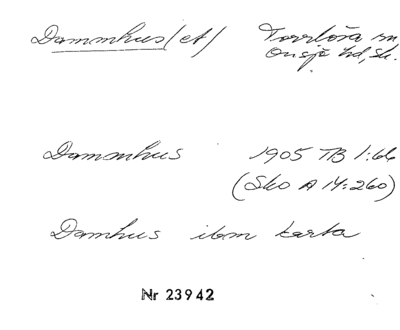 Dammhus(et) Torrlösa sn
Onsjö hd, Sk.
Dammhus 1905 TB 1:66
(Sko A 14:260)
Damhus ibm karta
Nr 23942